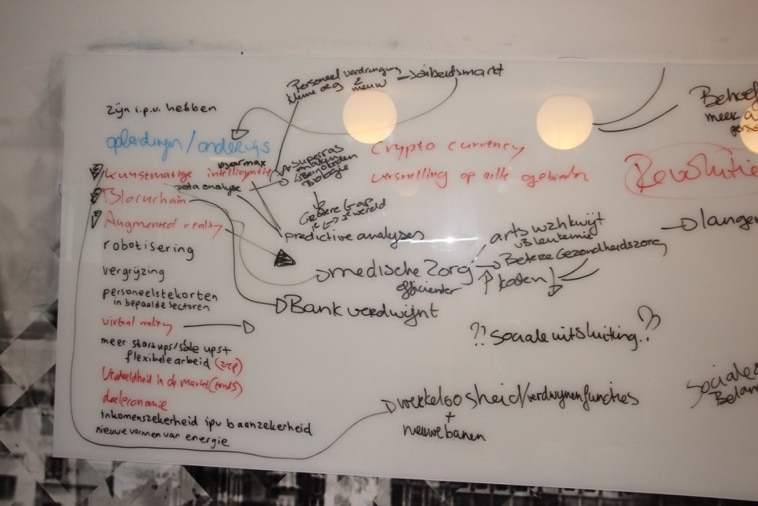 Personeel verdringing → arbeidsmarkt
nieuw
zijn i.p.v. hebben
opleidingen/onderwijs
kunstmatige intelligentie
data analyse
Blockchain
Augmented reality
robotisering
vergrijzing
personeelstekorten
in bepaalde sectoren
virtual reality
meer startups/scale ups+
flexibele arbeid (zzp)
Verdeeldheid in de markt
deeleconomie
inkomenszekerheid ipv baanzekerheid
nieuwe vormen van energie
Biologie
Grotere gap
predictive analyses
medische zorg
efficiënter
Bank verdwijnt
Crypto currency
versnelling op alle gebieden
arts
vb leukemie
Betere Gezondheidszorg
kosten
?? sociale uitsluiting ??
werkeloosheid/verdwijnen functies
+
nieuwe banen
Behoef
meer
perso
Revolutie
langer
Sociale
Belan